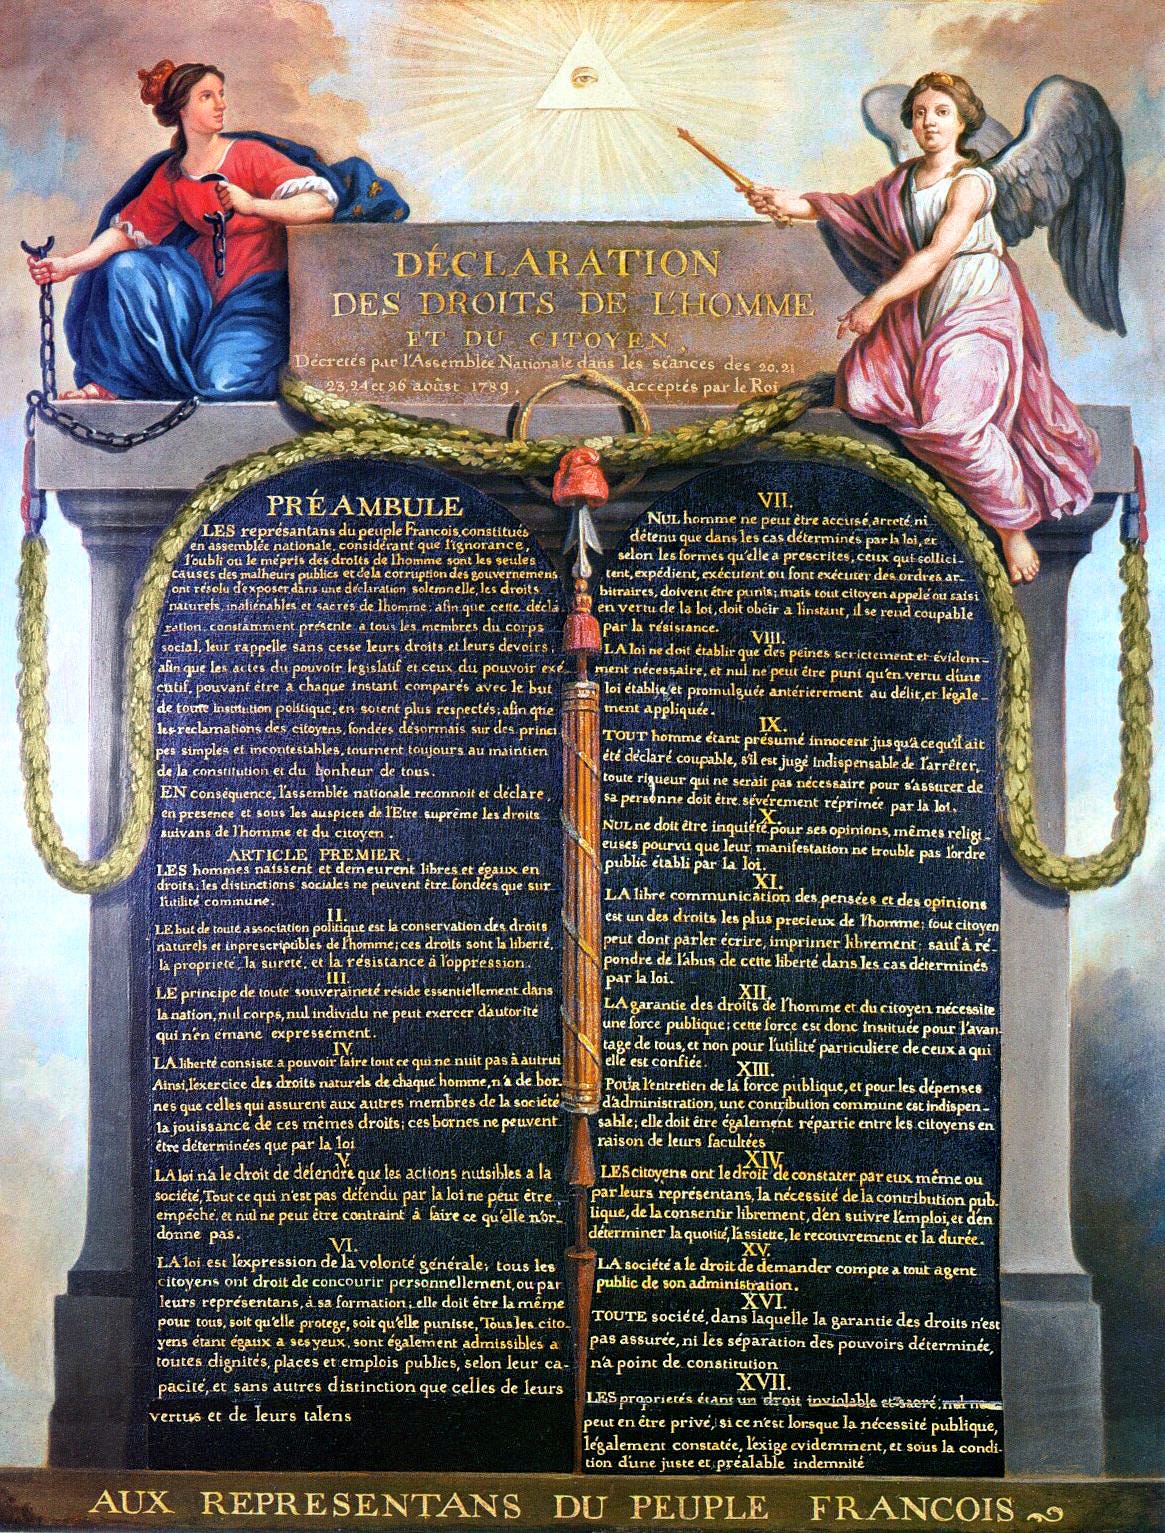 DÉCLARATION
DES DROITS DE L'HOMME
ET DU CITOYEN,
Décretés par l'Assemblée Nationale dans les séances des 20, 21
23, 24 et 26 août 1789, acceptés par le Roi
PRÉAMBULE
LES représantans du peuple Francois, constitués
en assemblée nationale, considérant que l'ignorance,
l'oubli ou le mépris des droits de l'homme sont les seules
causes des malheurs publics et de la corruption des gouvernemens
ont résolu d'exposer dans une déclaration solemnelle, les droits
naturels, inaliénables et sacrés de l'homme; afin que cette décla
ration, constamment présente a tous les membres du corps
social, leur rappelle sans cesse leurs droits et leurs devoirs;
afin que les actes du pouvoir legislatif et ceux du pouvoir exé
cutif, pouvant être a chaque instant comparés avec le but
de toute institution politique, en soient plus respectés; afin que
les reclamations des citoyens, fondées désormais sur des princi
pes simples et incontestables, tournent toujours au maintien
de la constitution et du bonheur de tous.
EN conséquence, l'assemblée nationale reconnoit et déclare,
en presence et sous les auspices de l'Etre suprême les droits
suivans de l'homme et du citoyen.
ARTICLE PREMIER.
LES hommes naissent et demeurent libres et égaux en
droits; les distinctions sociales ne peuvent être fondées que sur
l'utilité commune.
II.
LE but de toute association politique est la conservation des droits
naturels et inprescriptibles de l'homme; ces droits sont la liberté,
la proprieté, la sureté, et la résistance à l'oppression.
III.
LE principe de toute souveraineté réside essentiellement dans
la nation, nul corps, nul individu ne peut exercer d'autorité
qui n'en emane expressement.
IV.
LA liberté consiste a pouvoir faire tout ce qui ne nuit pas à autrui
Ainsi, l'exercice des droits naturels de chaque homme, n'a de bor-
nes que celles qui assurent aux autres membres de la société
la jouissance de ces mêmes droits; ces bornes ne peuvent
être déterminées que par la loi
V.
LA loi n'a le droit de défendre que les actions nuisibles a la
société, Tout ce qui n'est pas défendu par la loi ne peut être
empéché, et nul ne peut être contraint à faire ce qu'elle n'or-
donne pas.
VI.
LA loi est l'expression de la volonté générale; tous les
citoyens ont droit de concourir personnellement, ou par
leurs représentans, à sa formation; elle doit être la même
pour tous, soit qu'elle protege, soit qu'elle punisse, Tous les cito-
yens étant égaux a ses yeux, sont également admissibles a
toutes dignités, places et emplois publics, selon leur ca-
pacité, et sans autres distinction que celles de leurs
vertus et de leurs talens
VII.
NUL homme ne peut être accusé, arreté, ni
détenu que dans les cas déterminés par la loi, et
selon les formes qu'elle a prescrites, ceux qui sollici-
tent, expédient, exécutent ou font exécuter des ordres ar-
bitraires, doivent être punis; mais tout citoyen appelé ou saisi
en vertu de la loi, doit obéir a l'instant, il se rend coupable
par la résistance.
VIII.
LA loi ne doit établir que des peines strictement et évidem-
ment nécessaire, et nul ne peut être puni qu'en vertu d'une
loi établie et promulguée antérierement au délit, et légale-
ment appliquée.
IX.
TOUT homme étant présumé innocent jusqu'a ce qu'il ait
été déclaré coupable, s'il est jugé indispensable de l'arrêter,
toute rigueur qui ne serait pas nécessaire pour s'assurer de
sa personne doit être sévérement réprimée par la loi.
X.
NUL ne doit être inquiété pour ses opinions, mêmes religi-
euses pourvu que leur manifestation ne trouble pas l'ordre
public établi par la loi.
XI.
LA libre communication des pensées et des opinions
est un des droits les plus precieux de l'homme; tout citoyen
peut dont parler écrire, imprimer librement; sauf à ré-
pondre de l'abus de cette liberté dans les cas déterminés
par la loi.
XII.
LA garantie des droits de l'homme et du citoyen nécessite
une force publique; cette force est donc instituée pour l'avan-
tage de tous, et non pour l'utilité particuliere de ceux a qui
elle est confiée.
XIII.
POUR l'entretien de la force publique, et pour les dépenses
d'administration, une contribution commune est indispen-
sable; elle doit être également répartie entre les citoyens en
raison de leurs facultées
XIV.
LES citoyens ont le droit de constater par eux même ou
par leurs représentans, la nécessité de la contribution pub-
lique, de la consentir librement, d'en suivre l'emploi, et d'en
déterminer la quotité, l'assiette, le recouvrement et la durée.
XV.
LA société a le droit de demander compte a tout agent
public de son administration.
XVI.
TOUTE société, dans laquelle la garantie des droits n'est
pas assurée, ni les séparation des pouvoirs déterminée,
n'a point de constitution
XVII.
LES proprietés étant un droit inviolable et sacré, nul ne
peut en être privé, si ce n'est lorsque la nécessité publique,
légalement constatée, l'exige evidemment, et sous la condi-
tion d'une juste et préalable indemnité
AUX REPRESENTANS DU PEUPLE FRANCOIS